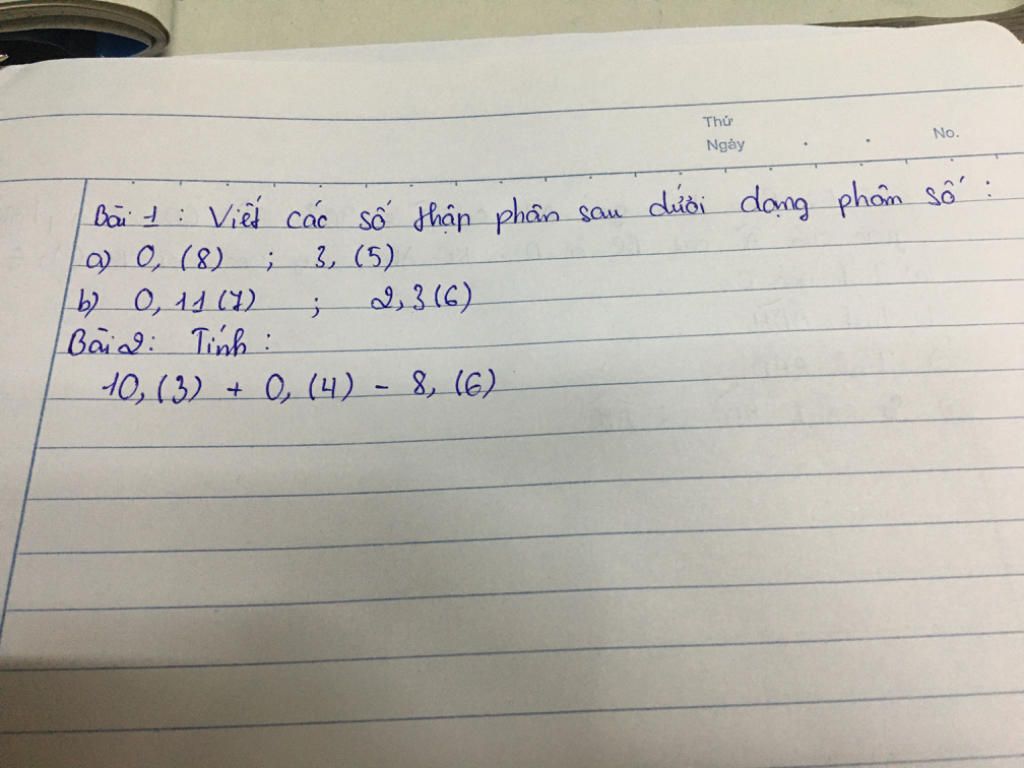 Thứ
Ngày . . No.
Bài 1 : Viết các số thập phân sau dưới dạng phân số :
a) 0, (8) ; 3, (5)
b) 0, 11 (7) ; 2, 3 (6)
Bài 2 : Tính :
10, (3) + 0, (4) - 8, (6)